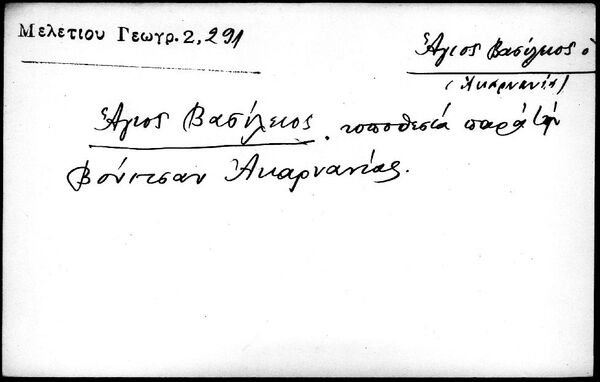 Μελετίου Γεωγρ. 2, 291
Ἅγιος Βασίλειος ὁ
(Ἀκαρνανία)
Ἅγιος Βασίλειος. τοποθεσία παρὰ τὴν
Βόνιτσαν Ἀκαρνανίας.